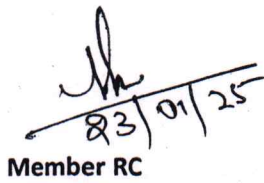 23/01/25
Member RC